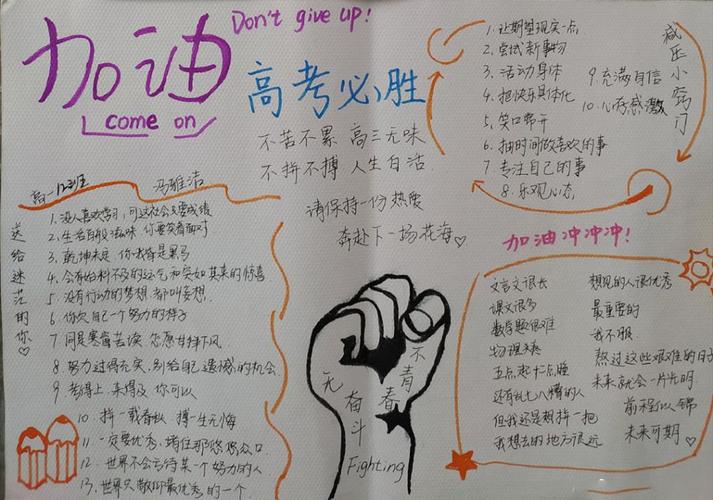 加油
come on
Don't give up!
高考必胜
不苦不累 高三无味
不拼不搏 人生白活
请保持一份热爱
奔赴下一场花海
减压小窍门
1.让期望现实一点
2.尝试新事物
3.活动身体
4.把快乐具体化
5.笑口常开
6.抽时间做喜欢的事
7.专注自己的事
8.乐观心态
9.充满自信
10.心怀感激
高一12班 冯雅洁
送给迷茫的你
1.没人喜欢学习,可这社会只要成绩
2.生活百般滋味 你要笑着面对
3.乾坤未定 你我皆是黑马
4.会有始料不及的运气和突如其来的惊喜
5.没有行动的梦想 都叫妄想.
6.你欠自己一个努力的样子
7.同是寒窗苦读 怎愿甘拜下风
8.努力过得充实,别给自己遗憾的机会
9.考得上 来得及 你可以
10.拼一载春秋 搏一生无悔
11.一定要优秀,堵住那悠悠众口.
12.世界不会亏待某一个努力的人
13.世界只敬仰最优秀的一个
无奋斗
不青春
Fighting
加油冲冲冲!
文言文很长
课文很多
数学题很难
物理
五点起十二点睡
还有乱七八糟的人
但我还是想拼一把
我想去的地方很远
想见的人很优秀
最重要的
我不服
熬过这些艰难的日子
未来就会一片光明.
前程似锦
未来可期